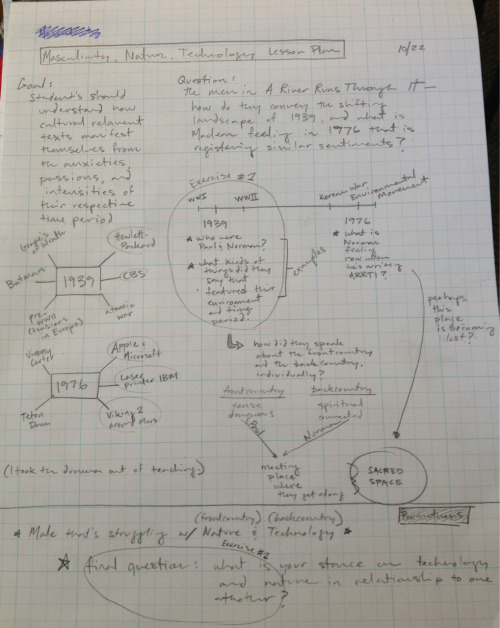 Masculinity, Nature, Technology Lesson Plan
10/22
Goal:
Student's should
understand how
cultural relevant
texts manifest
themselves from
the anxieties,
passions, and
intensities of
their respective
time period
Question:
The men in A River Runs Through It—
how do they convey the shifting
landscape of 1939, and what is
Maclean feeling in 1976 that is
registering similar sentiments?
Exercise #1
WWI WWII
1939
* who were
Paul & Norman?
* what kinds of
things did they
say that
featured their
environment
and time
period?
examples
Korean War Environmental
Movement
1976
* what is
Norman
feeling
now when
he's writing
ARRTI?
perhaps
this
place
is becoming
lost?
Grapes of Wrath
Hewlett-
Packard
Batman
1939
CBS
pre-
WWII
(tensions
in Europe)
atomic
war
how did they speak
about the frontcountry
and the backcountry,
individually?
frontcountry backcountry
tense
dangerous
spiritual
connected
Paul
Norman
meeting
place
where
they get along
SACRED
SPACE
Jimmy
Carter
Apple &
Microsoft
1976
Laser
printer IBM
Teton
Dam
Viking 2
around Mars
(I took the drama out of teaching.)
(frontcountry) (backcountry)
* Male that's struggling w/ Nature & Technology *
Exercise #2
final question: what is your stance on technology
and nature in relationship to one
another?